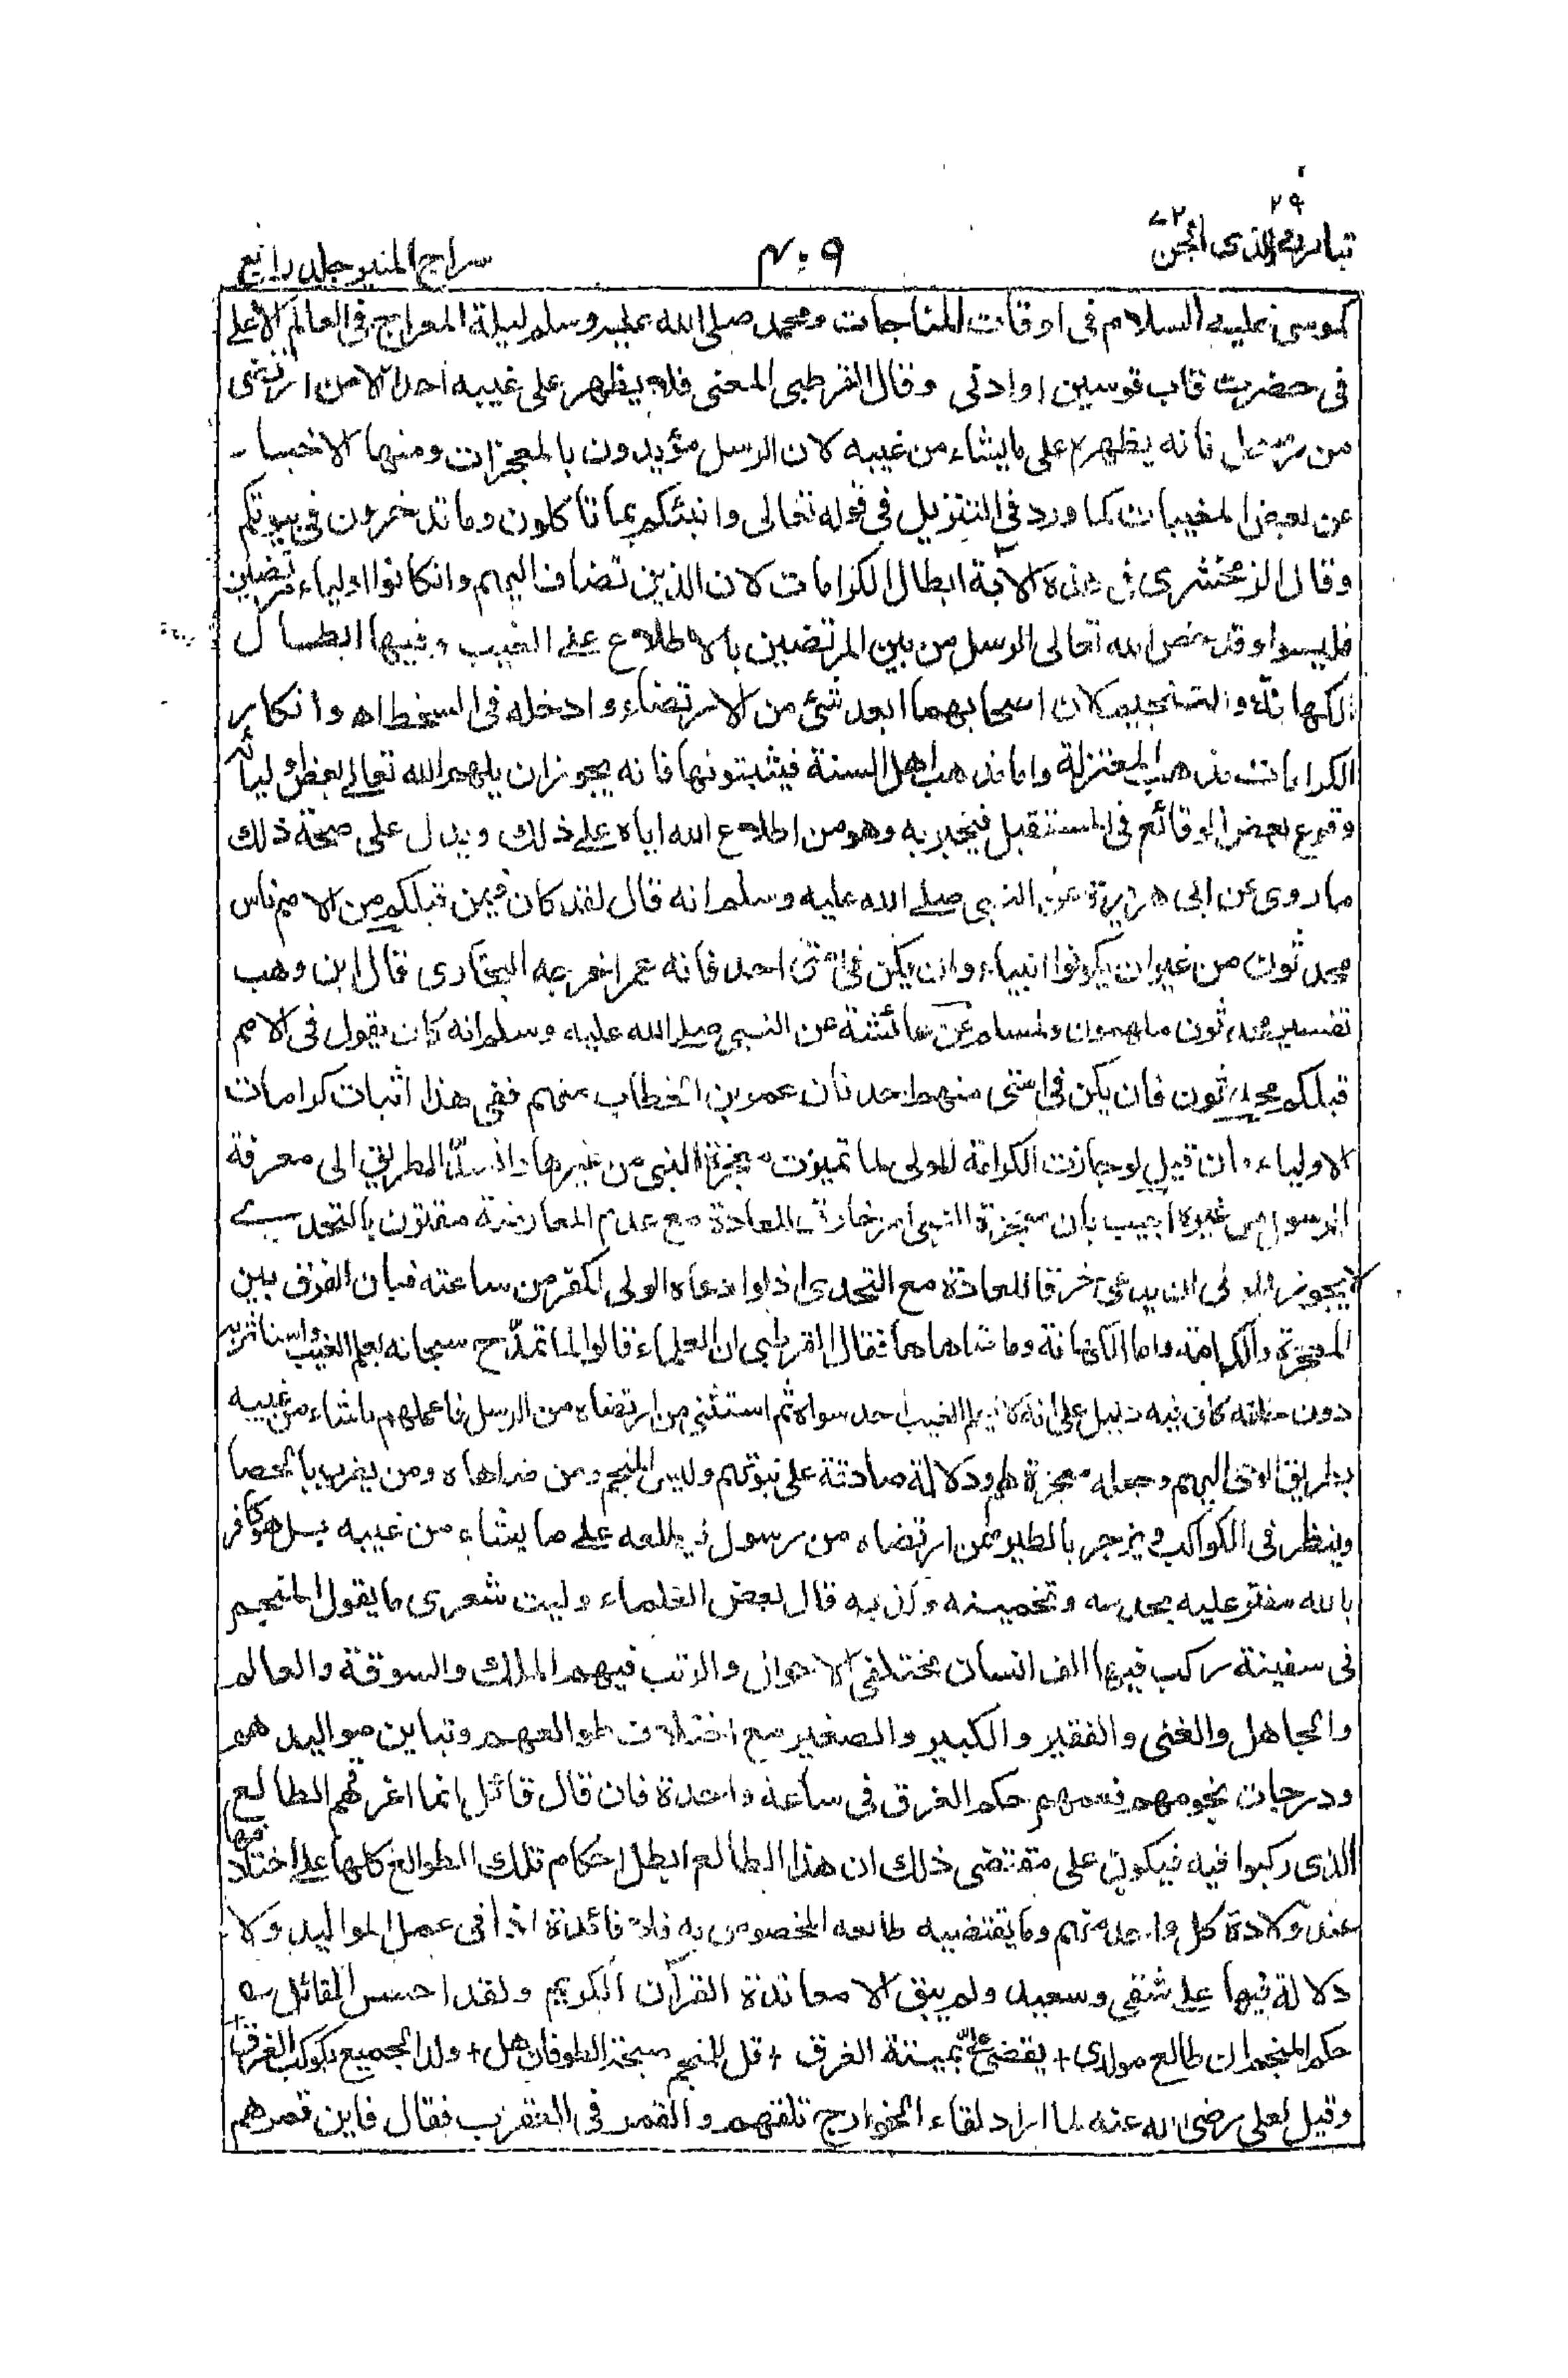 ٢٩
٧٢
تبارك الذى الجن
٤٠٩
سراج المنير جلد رابع
كموسى عليه السلام فى اوقات المناجات ومحمد صلى الله عليه وسلم ليلة المعراج فى العالم الاعلى
فى حضرت قاب قوسين اوادنى وقال القرطبى المعنى فلا يظهر على غيبه احدا الا من ارتضى
من رسول فانه يظهره على ما يشاء من غيبه لان الرسل مؤيدون بالمعجزات ومنها الاخبار
عن بعض المغيبات كما ورد فى التنزيل فى قوله تعالى وانبئكم بما تاكلون وما تدخرون فى بيوتكم
وقال الزمخشرى فى هذه الآية ابطال الكرامات لان الذين تضاف اليهم وانكانوا اولياء مرتضين
فليسوا وقد خص الله تعالى الرسل من بين المرتضين بالاطلاع على الغيب وفيها ابطال
الكهانة والتنجيم لان اصحابهما ابعد شئ من الارتضاء وادخله فى السخط اه وانكار
الكرامات مذهب المعتزلة واما مذهب اهل السنة فيثبتونها فانه يجوز ان يلهم الله تعالى بعض اوليائه
وقوع بعض الوقائع فى المستقبل فيخبر به وهو من اطلاع الله اياه على ذلك ويدل على صحة ذلك
ما روى عن ابى هريرة عن النبى صلى الله عليه وسلم انه قال لقد كان فيمن قبلكم من الامم ناس
محدثون من غير ان يكونوا انبياء وان يكن فى امتى احد فانه عمر اخرجه البخارى قال ابن وهب
تفسير محدثون ملهمون ولمسلم عن عائشة عن النبى صلى الله عليه وسلم انه كان يقول فى الامم
قبلكم محدثون فان يكن فى امتى منهم احد فان عمر بن الخطاب منهم ففى هذا اثبات كرامات
الاولياء فان قيل لو جازت الكرامة للولى لما تميزت معجزة النبى من غيرها وانسد الطريق الى معرفة
الرسول من غيره اجيب بان معجزة النبى امر خارق للعادة مع عدم المعارضة مقترن بالتحدى
لا يجوز للولى ان يدعى خرقا للعادة مع التحدى اذ لو ادعاه الولى لكفر من ساعته فبان الفرق بين
المعجزة والكرامة واما الكهانة وما ضاهاها فقال القرطبى ان العلماء قالوا لما تمدح سبحانه بعلم الغيب واستاثر به
دون خلقه كان فيه دليل على انه لا يعلم الغيب احد سواه ثم استثنى من ارتضاه من الرسل فاعلمهم ما شاء من غيبه
بطريق الوحى اليهم وجعله معجزة لهم ودلالة صادقة على نبوتهم وليس المنجم ومن ضاهاه ومن يضرب بالحصا
وينظر فى الكواكب ويزجر بالطير ممن ارتضاه من رسول فيطلعه على ما يشاء من غيبه بل هو كافر
بالله مفتر عليه بحدسه وتخمينه وكذبه قال بعض العلماء وليت شعرى ما يقول المنجم
فى سفينة ركب فيها الف انسان مختلفى الاحوال والرتب فيهم الملك والسوقة والعالم
والجاهل والغنى والفقير والكبير والصغير مع اختلاف طوالعهم وتباين مواليدهم
ودرجات نجومهم فعمهم حكم الغرق فى ساعة واحدة فان قال قائل انما اغرقهم الطالع
الذى ركبوا فيه فيكون على مقتضى ذلك ان هذا الطالع ابطل احكام تلك الطوالع كلها على اختلافها
عند ولادة كل واحد منهم وما يقتضيه طالعه المخصوص به فلا فائدة اذا فى عمل المواليد ولا
دلالة فيها على شقى وسعيد ولم يبق الا معاندة القرآن الكريم ولقد احسن القائل ؎
حكم المنجم ان طالع مولدى + يقضى على بميتة الغرق + قل للمنجم صبحة الطوفان هل + ولد الجميع بكوكب الغرق +
وقيل لعلى رضى الله عنه لما اراد لقاء الخوارج تلقهم والقمر فى العقرب فقال فاين قمرهم